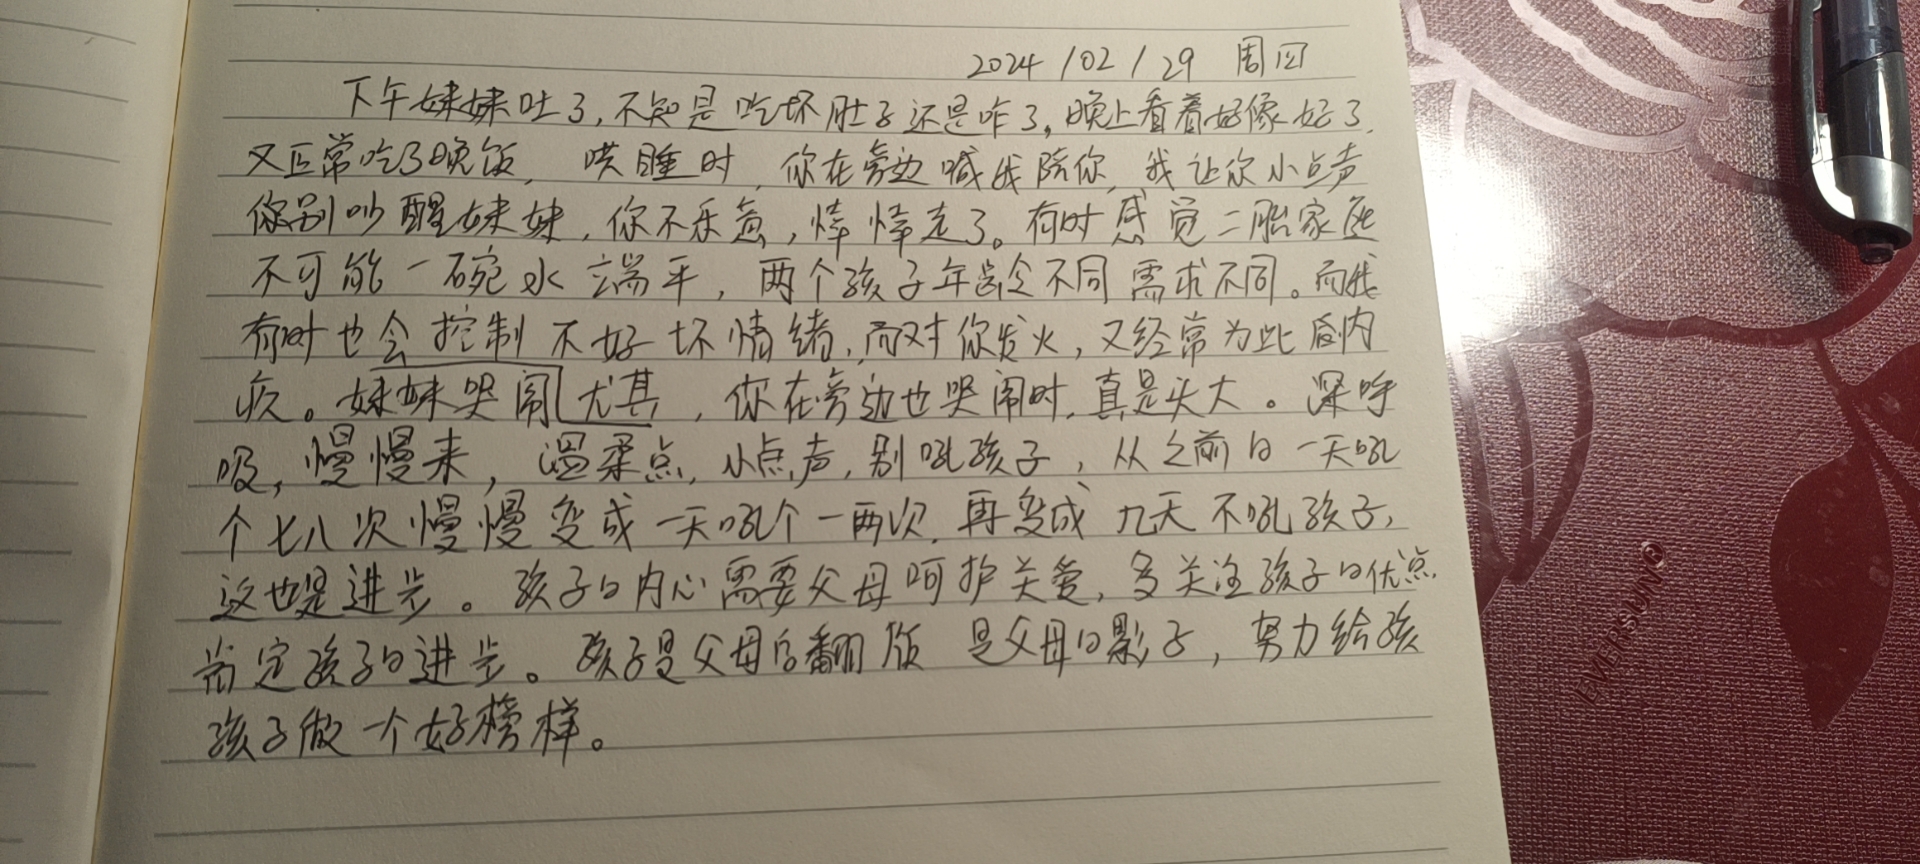 2024/02/29 周四
下午妹妹吐了,不知是吃坏肚子还是咋了,晚上看着好像好了,
又正常吃了晚饭,哄睡时,你在旁边喊我陪你,我让你小点声
你别吵醒妹妹,你不乐意,悻悻走了。有时感觉二胎家庭
不可能一碗水端平,两个孩子年龄不同需求不同。而我
有时也会控制不好坏情绪,而对你发火,又经常为此感内
疚。妹妹哭闹尤其,你在旁边也哭闹时,真是头大。深呼
吸,慢慢来,温柔点,小点声,别吼孩子,从之前的一天吼
个七八次慢慢变成一天吼个一两次,再变成几天不吼孩子,
这也是进步。孩子的内心需要父母呵护关爱,多关注孩子的优点,
肯定孩子的进步。孩子是父母的翻版 是父母的影子,努力给孩
孩子做一个好榜样。
EVERSUN®